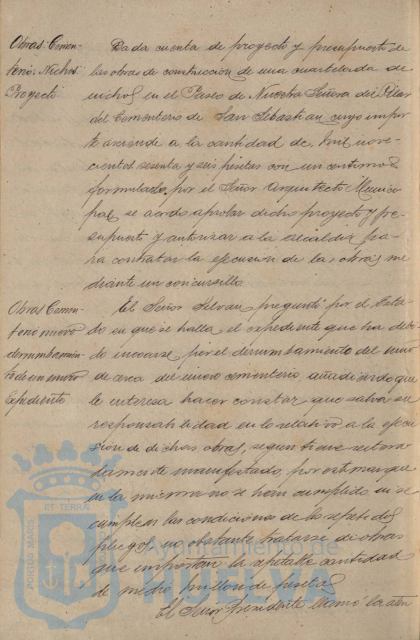 Obras. Cemen-
terio. Nichos
Proyecto
Dada cuenta de proyecto y presupuesto de
las obras de construcción de una cuartelada de
nichos en el Paseo de Nuestra Señora del Pilar
del Cementerio de San Sebastian cuyo impor
te asciende a la cantidad de mil nove-
cientas sesenta y seis pesetas con un centimo
formulado por el Señor Arquitecto Munici
pal, se acordó aprobar dicho proyecto y pre-
supuesto y autorizar a la alcaldía pa-
ra contratar la ejecución de las obras me
diante un concursillo.
Obras Cemen-
terio nuevo
derrumbamien-
to de un muro
expediente
El Señor Selvan preguntó por el esta-
do en que se halla el expediente que ha debi-
do incoarse por el derrumbamiento del muro
de cerca del nuevo cementerio añadiendo que
le interesa hacer constar que salva su
responsabilidad en lo relativo a la ejecu-
ción de dichas obras, segun tiene reitera-
damente manifestado, por estimar que
en la misma no se han cumplido ni se
cumplen las condiciones de los repetidos
pliegos, no obstante tratarse de obras
que importan la respetable cantidad
de medio millon de pesetas
El Señor Presidente llamó la aten
PORTUS MARIS
ET TERRAE
Ayuntamiento de
HUELVA